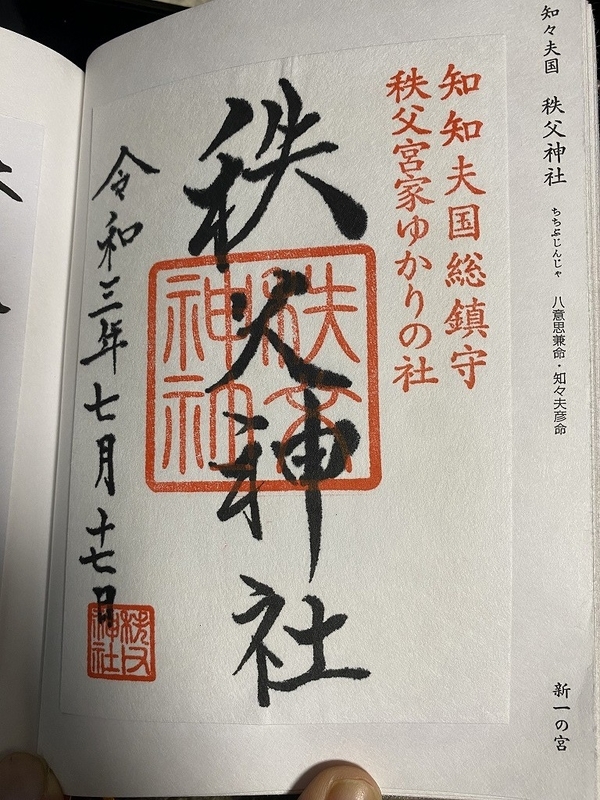 知々夫国 秩父神社 ちちぶじんじゃ 八意思兼命・知々夫彦命 新一の宮
知知夫国総鎮守
秩父宮家ゆかりの社
秩父神社
秩父
神社
令和三年七月十七日
秩父
神社